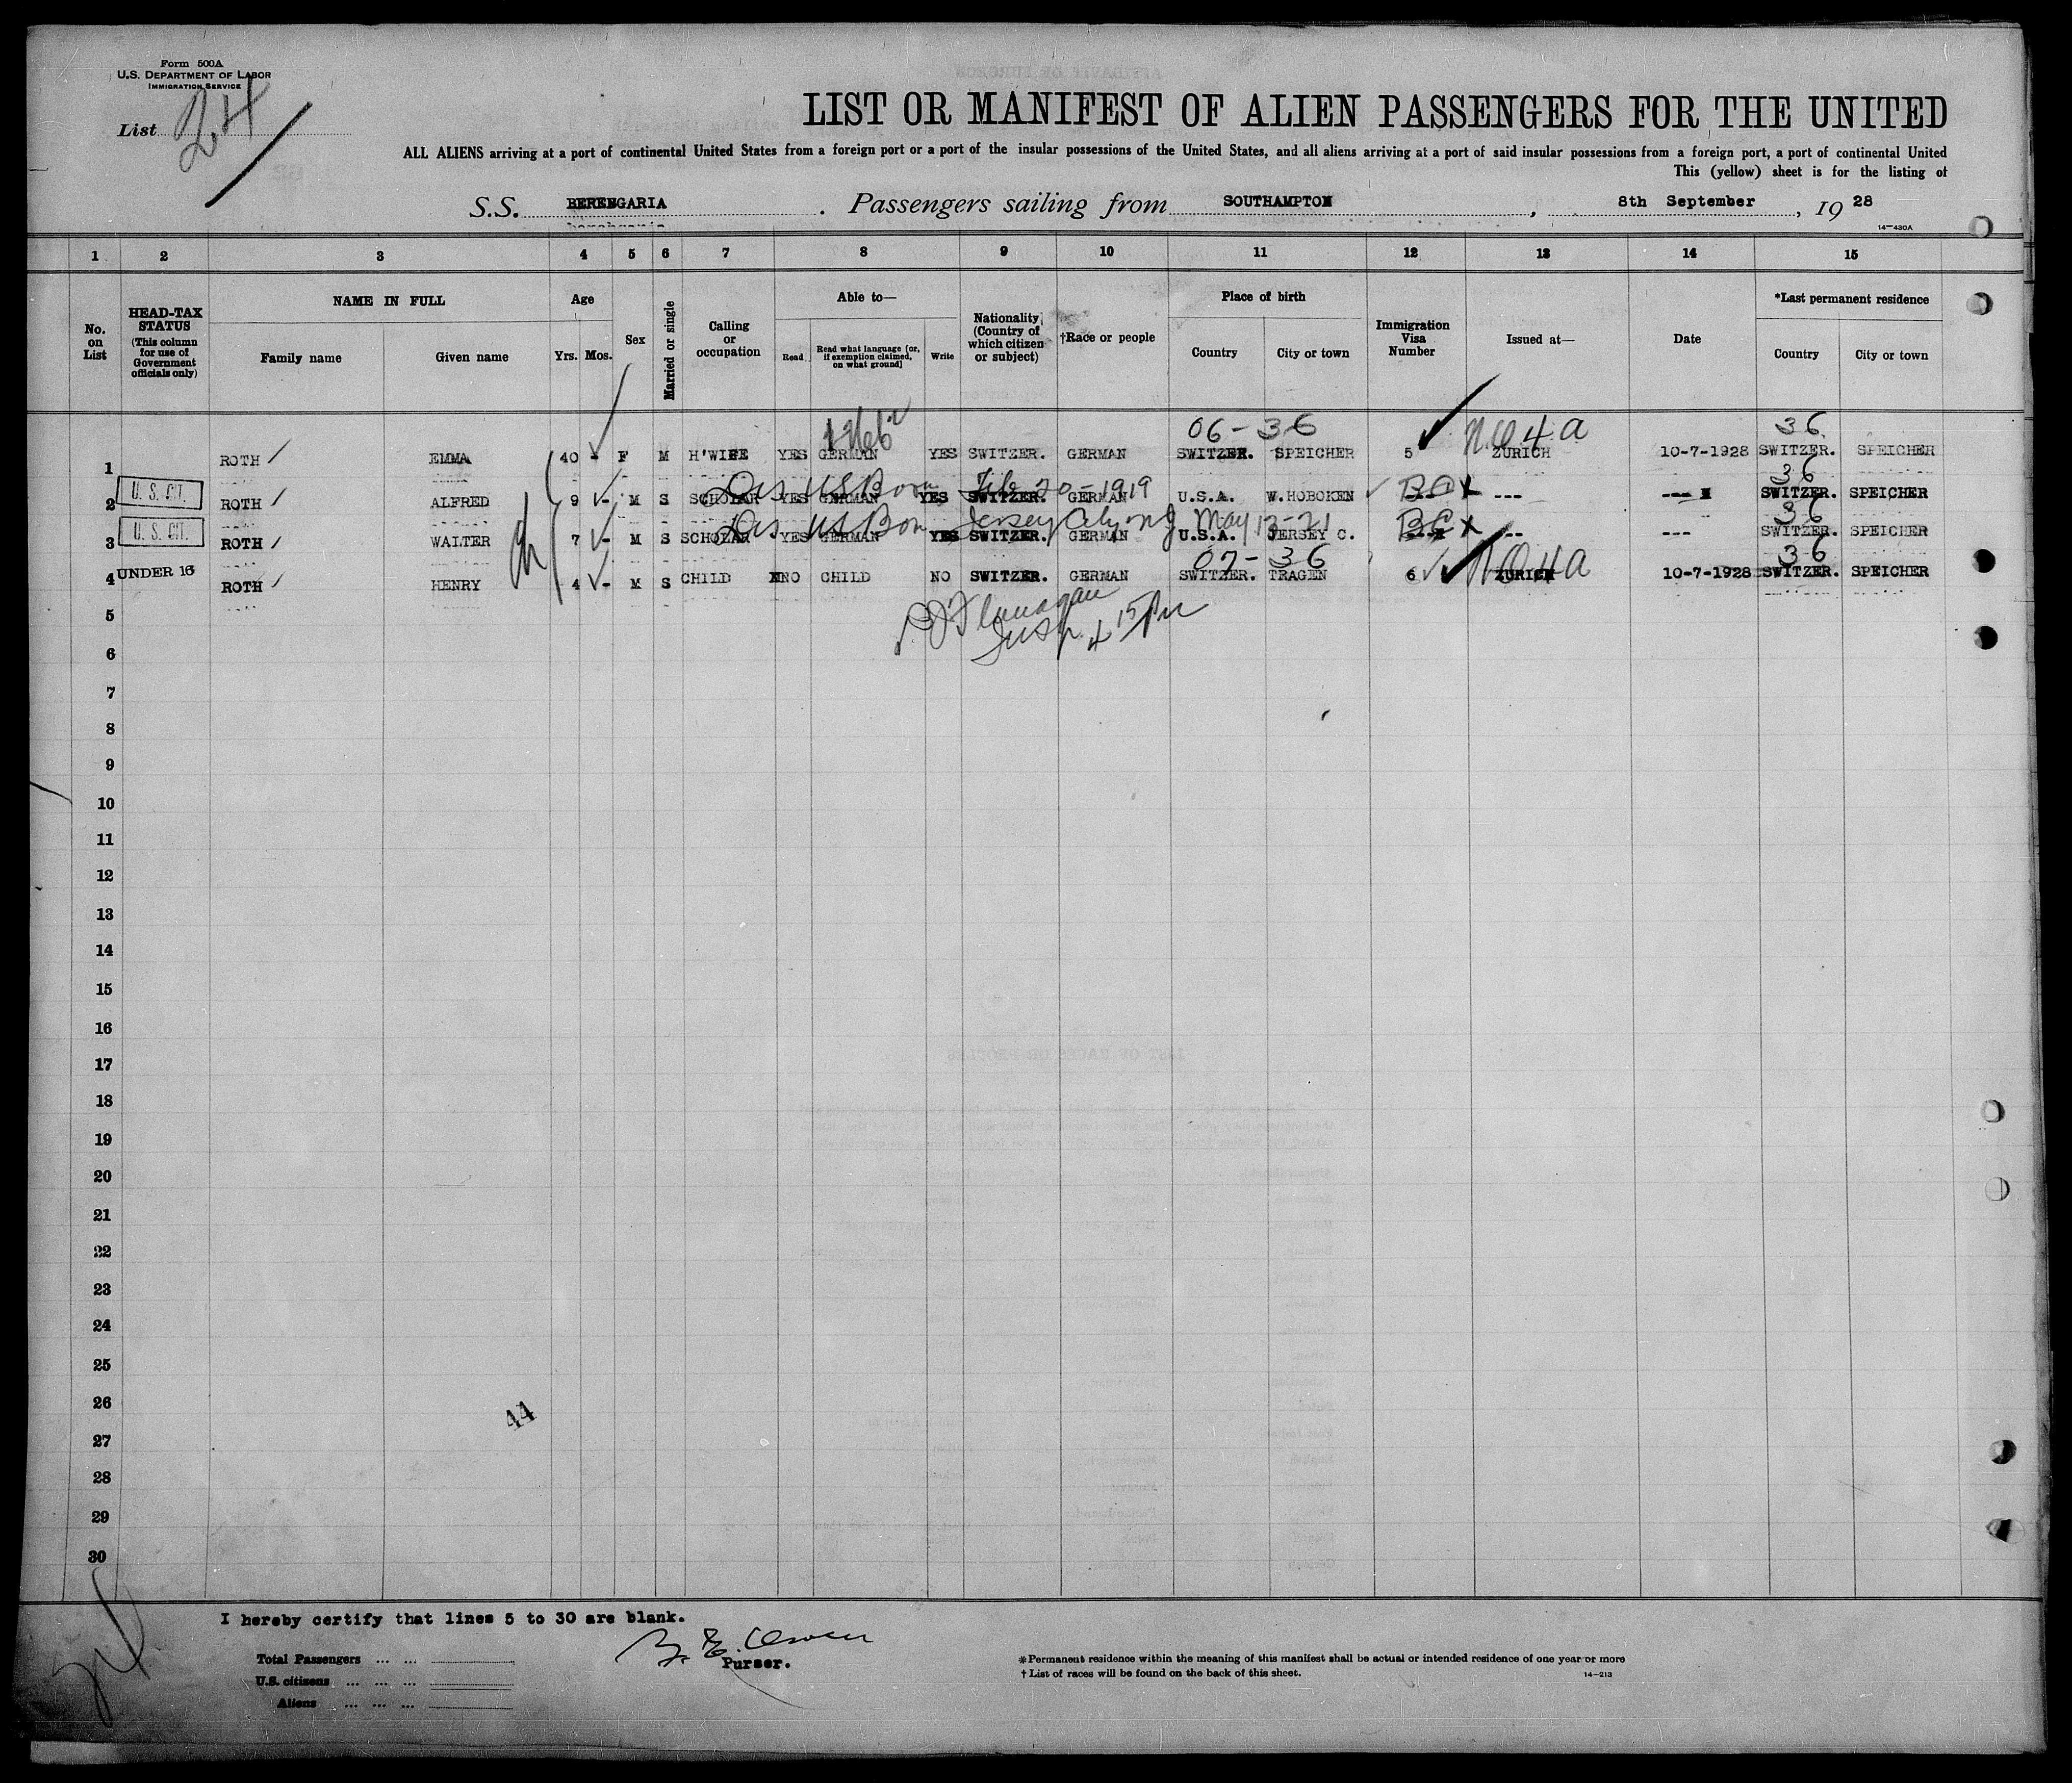 Form 500A
U.S. DEPARTMENT OF LABOR
IMMIGRATION SERVICE
List 24
LIST OR MANIFEST OF ALIEN PASSENGERS FOR THE UNITED
ALL ALIENS arriving at a port of continental United States from a foreign port or a port of the insular possessions of the United States, and all aliens arriving at a port of said insular possessions from a foreign port, a port of continental United
This (yellow) sheet is for the listing of
S.S. BERENGARIA. Passengers sailing from SOUTHAMPTON, 8th September, 19 28
14-430A
1 2 3 4 5 6 7 8 9 10 11 12 13 14 15
No. on List
HEAD-TAX STATUS (This column for use of Government officials only)
NAME IN FULL
Family name Given name
Age
Yrs. Mos.
Sex
Married or single
Calling or occupation
Able to—
Read Read what language (or, if exemption claimed, on what ground) Write
Nationality (Country of which citizen or subject)
†Race or people
Place of birth
Country City or town
Immigration Visa Number
Issued at—
Date
*Last permanent residence
Country City or town
06-36 N.Q4a 36
1 ROTH EMMA 40 - F M H'WIFE YES GERMAN YES SWITZER. GERMAN SWITZER. SPEICHER 5 ZURICH 10-7-1928 SWITZER. SPEICHER
US Born Feb 20-1919 BC X 36
2 U.S. CIT. ROTH ALFRED 9 - M S SCHOLAR YES GERMAN YES SWITZER. GERMAN U.S.A. W.HOBOKEN --- --- SWITZER. SPEICHER
US Born Jersey City NJ May 13-21 BC X 36
3 U.S. CIT. ROTH WALTER 7 - M S SCHOLAR YES GERMAN YES SWITZER. GERMAN U.S.A. JERSEY C. --- --- SWITZER. SPEICHER
07-36 NQ4a 36
4 UNDER 16 ROTH HENRY 4 - M S CHILD NO CHILD NO SWITZER. GERMAN SWITZER. TRAGEN 6 ZURICH 10-7-1928 SWITZER. SPEICHER
Flanagan
Insp. 4 15 Pm
5
6
7
8
9
10
11
12
13
14
15
16
17
18
19
20
21
22
23
24
25
26
44
27
28
29
30
I hereby certify that lines 5 to 30 are blank.
Total Passengers ... ...
U.S. citizens ... ... ...
Aliens ... ... ...
Purser.
*Permanent residence within the meaning of this manifest shall be actual or intended residence of one year or more
† List of races will be found on the back of this sheet.
14-213
24